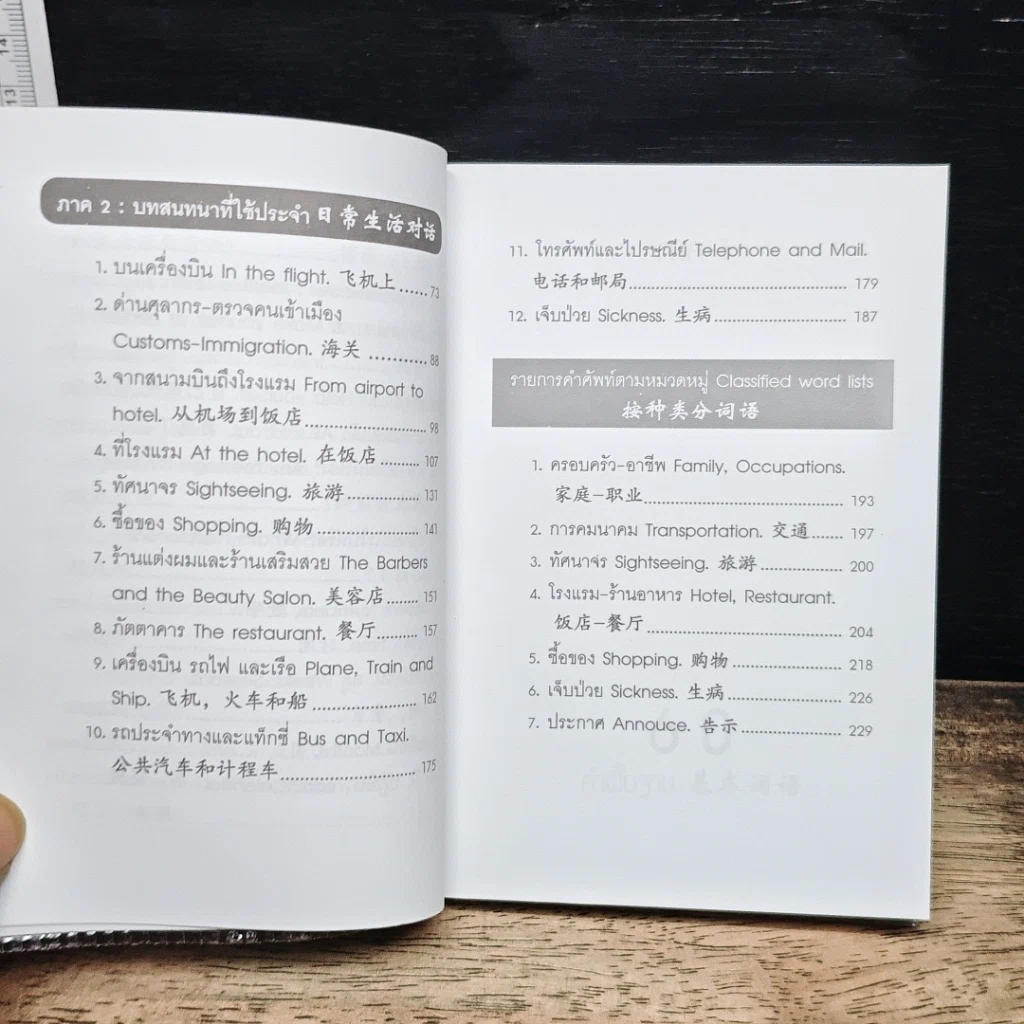 14
13
ภาค 2 : บทสนทนาที่ใช้ประจำ 日常生活对话
1. บนเครื่องบิน In the flight. 飞机上......73
2. ด่านศุลากร-ตรวจคนเข้าเมือง
Customs-Immigration. 海关 ...........88
3. จากสนามบินถึงโรงแรม From airport to
hotel. 从机场到饭店........................98
4. ที่โรงแรม At the hotel. 在饭店.........107
5. ทัศนาจร Sightseeing. 旅游..............131
6. ซื้อของ Shopping. 购物....................141
7. ร้านแต่งผมและร้านเสริมสวย The Barbers
and the Beauty Salon. 美容店........151
8. ภัตตาคาร The restaurant. 餐厅..........157
9. เครื่องบิน รถไฟ และเรือ Plane, Train and
Ship. 飞机，火车和船....................162
10. รถประจำทางและแท็กซี่ Bus and Taxi.
公共汽车和计程车..........................175
11. โทรศัพท์และไปรษณีย์ Telephone and Mail.
电话和邮局..........................................179
12. เจ็บป่วย Sickness. 生病.........................187
รายการคำศัพท์ตามหมวดหมู่ Classified word lists
按种类分词语
1. ครอบครัว-อาชีพ Family, Occupations.
家庭-职业......................................193
2. การคมนาคม Transportation. 交通.......197
3. ทัศนาจร Sightseeing. 旅游................200
4. โรงแรม-ร้านอาหาร Hotel, Restaurant.
饭店-餐厅......................................204
5. ซื้อของ Shopping. 购物.....................218
6. เจ็บป่วย Sickness. 生病......................226
7. ประกาศ Annouce. 告示....................229